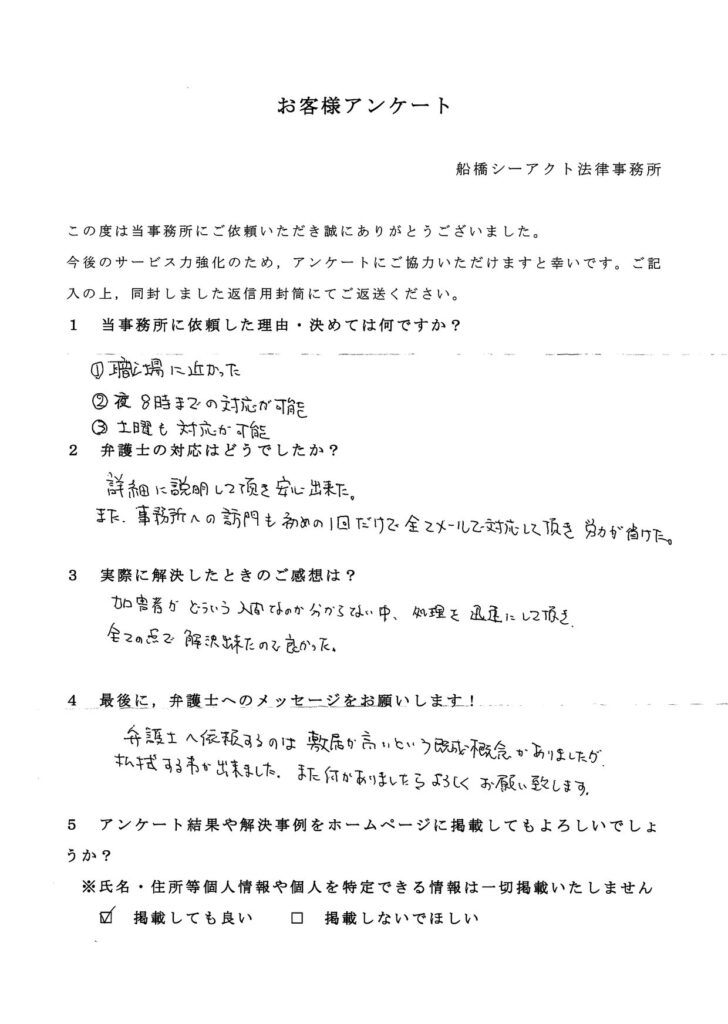 お客様アンケート
船橋シーアクト法律事務所
この度は当事務所にご依頼いただき誠にありがとうございました。
今後のサービス力強化のため，アンケートにご協力いただけますと幸いです。ご記
入の上，同封しました返信用封筒にてご返送ください。
1　当事務所に依頼した理由・決めては何ですか？
①職場に近かった
②夜8時までの対応が可能
③土曜も対応が可能
2　弁護士の対応はどうでしたか？
詳細に説明して頂き安心出来た。
また、事務所への訪問も初めの1回だけで全てメールで対応して頂き労力が省けた。
3　実際に解決したときのご感想は？
加害者がどういう人間なのか分からない中、処理を迅速にして頂き
全ての点で解決出来たので良かった。
4　最後に，弁護士へのメッセージをお願いします！
弁護士へ依頼するのは敷居が高いという既成概念がありましたが
払拭する事が出来ました。また何かありましたらよろしくお願い致します。
5　アンケート結果や解決事例をホームページに掲載してもよろしいでしょ
うか？
※氏名・住所等個人情報や個人を特定できる情報は一切掲載いたしません
☑　掲載しても良い　　□　掲載しないでほしい